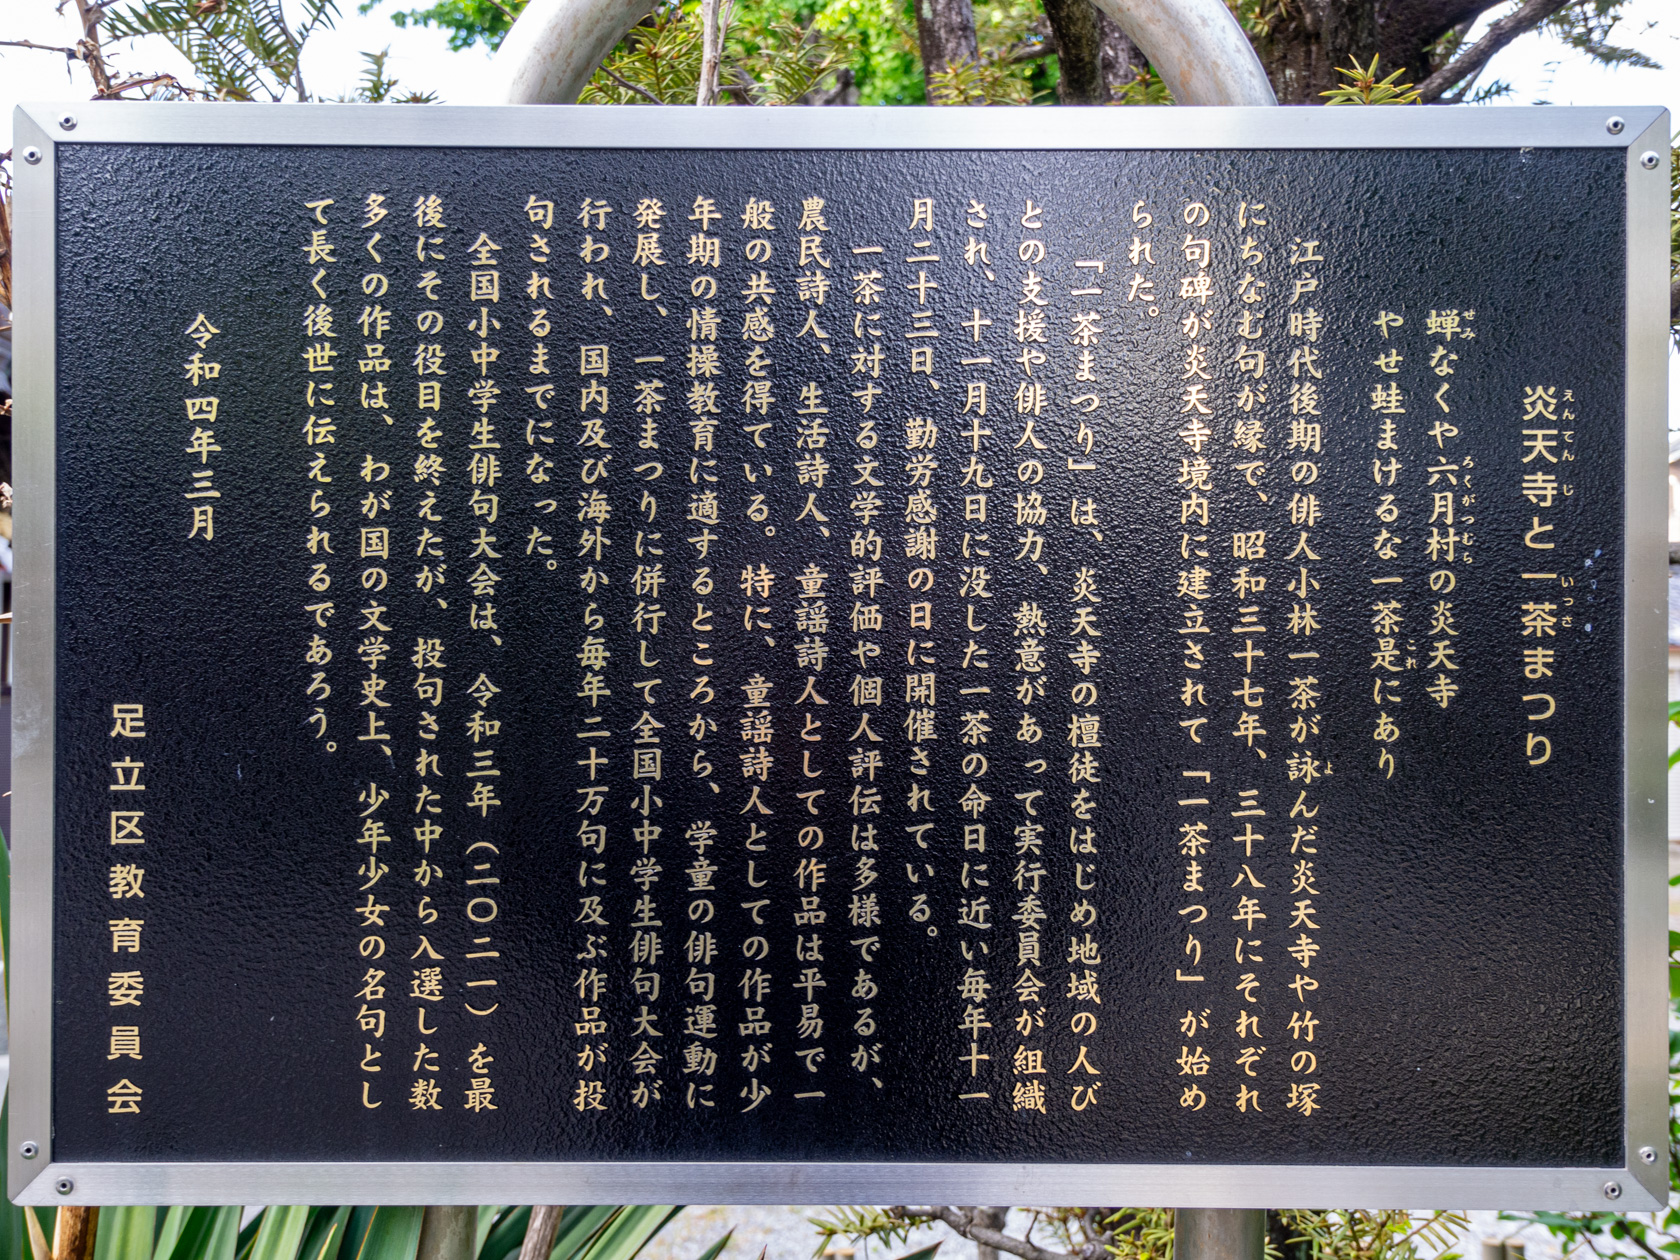 炎天寺と一茶まつり
えんてんじ
いっさ
蝉なくや六月村の炎天寺
せみ
ろくがつむら
やせ蛙まけるな一茶是にあり
これ
江戸時代後期の俳人小林一茶が詠んだ炎天寺や竹の塚
よ
にちなむ句が縁で、昭和三十七年、三十八年にそれぞれ
の句碑が炎天寺境内に建立されて「一茶まつり」が始め
られた。
「一茶まつり」は、炎天寺の檀徒をはじめ地域の人び
との支援や俳人の協力、熱意があって実行委員会が組織
され、十一月十九日に没した一茶の命日に近い毎年十一
月二十三日、勤労感謝の日に開催されている。
一茶に対する文学的評価や個人評伝は多様であるが、
農民詩人、生活詩人、童謡詩人としての作品は平易で一
般の共感を得ている。特に、童謡詩人としての作品が少
年期の情操教育に適するところから、学童の俳句運動に
発展し、一茶まつりに併行して全国小中学生俳句大会が
行われ、国内及び海外から毎年二十万句に及ぶ作品が投
句されるまでになった。
全国小中学生俳句大会は、令和三年（二〇二一）を最
後にその役目を終えたが、投句された中から入選した数
多くの作品は、わが国の文学史上、少年少女の名句とし
て長く後世に伝えられるであろう。
令和四年三月
足立区教育委員会